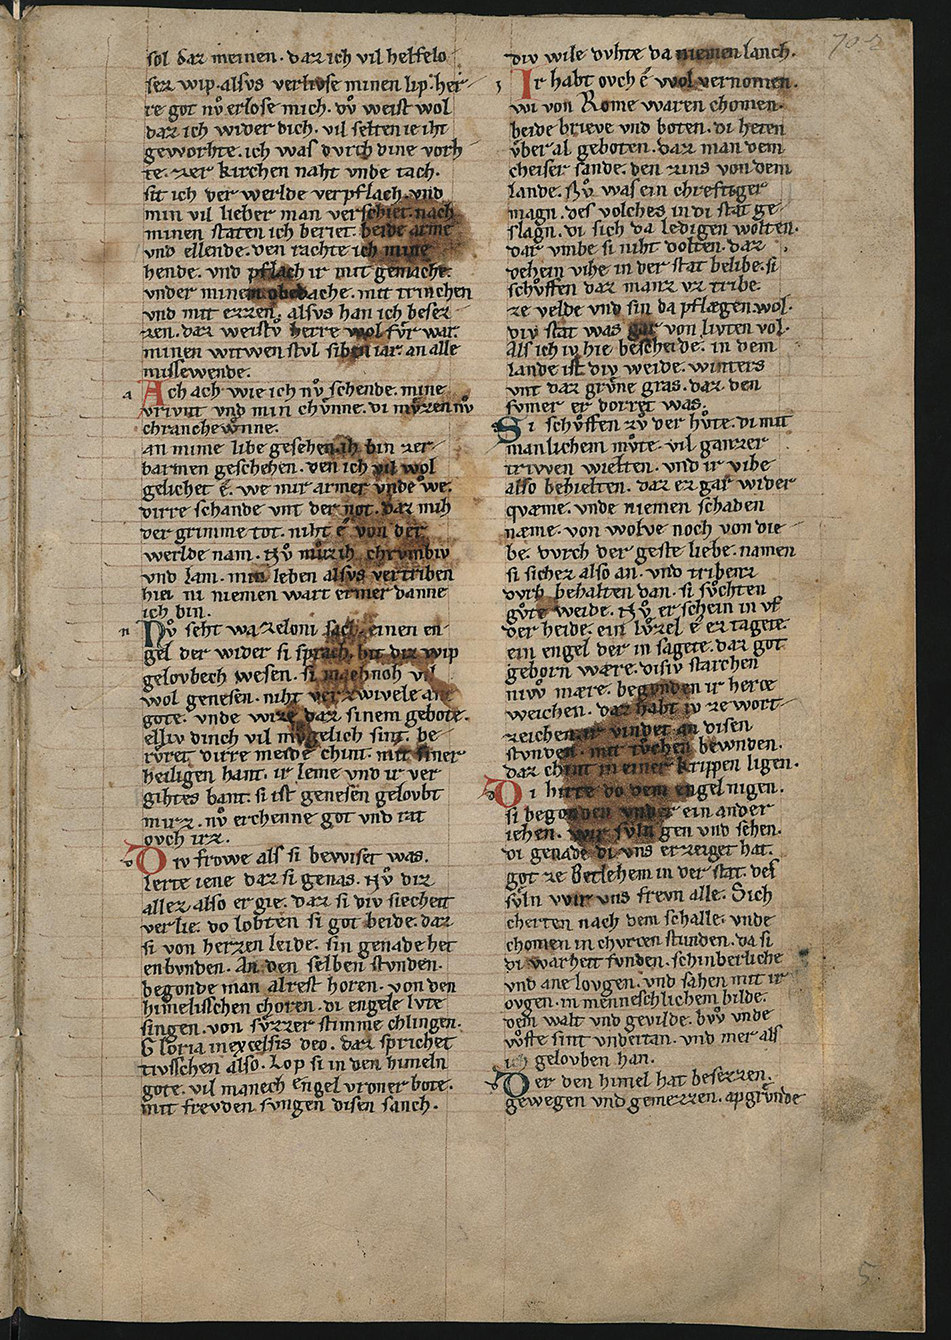 sol daz meinen. daz ich vil helfelo
ser wip. alsvs verlivse minen lip. her
re got nv̊ erlose mich. dv̊ weist wol
daz ich wider dich. vil selten ie iht
geworhte. ich was dvrch dine vorh
te. zer kirchen naht vnde tach.
sit ich der werlde verpflach. vnd
min vil lieber man verschiet. nach
minen staten ich beriet. beide arme
vnd ellende. den rachte ich mine
hende. vnd pflach ir mit gemache.
vnder minem obedache. mit trinchen
vnd mit ezzen. alsvs han ich besez
zen. daz weistv̊ herre wol fv̊r war.
minen witwen stvl siben iar. an alle
missewende.
a Ach ach wie ich nv̊ schende. mine
vrivnt vnd min chv̊nne. di mv̊zen nv̊
chranche wnne.
an mime libe gesehen. ih bin zer
barmen geschehen. den ich vil wol
gelichet e. we mir armer vnde we.
dirre schande vnt der not. daz mih
der grimme tot. niht e von der
werlde nam. Nv̊ mv̊z ih chrvmbiv
vnd lam. min leben alsvs vertriben
hie. ni niemen wart ermer danne
ich bin.
n Nv̊ seht wa zeloni sach. einen en
gel der wider si sprach. hit dir wip
gelovbech wesen. si mach noh vil
wol genesen. niht verzwivele an
gote. vnde wize daz sinem gebote.
elliv dinch vil mvgelich sint. be
rv̊ret dirre meide chint. mit siner
heiligen hant. ir leme vnd ir ver
gihtes bant. si ist genesen gelovbt
mirz. nv̊ erchenne got vnd rat
ovch irz.
d Div frowe als si bewiset was.
lerte iene daz si genas. Nv̊ diz
allez also ergie. daz si div siecheit
verlie. do lobten si got beide. daz
si von herzen leide. sin genade het
enbvnden. An den selben stvnden.
begonde man alrest horen. von den
himelisschen choren. di engele lvte
singen. von sv̊zzer stimme chlingen.
Gloria in excelsis deo. daz sprichet
tivsschen also. Lop si in den himeln
gote. vil manech engel vroner bote.
mit frevden svngen disen sanch.
div wile dvhte da niemen lanch.
i Ir habt ovch e wol vernomen.
wi von Rome waren chomen.
beide brieve vnd boten. di heten
v̊ber al geboten. daz man dem
cheiser sande. den zins von dem
lande. Nv̊ was ein chreftiger
magn. des volches in di stat ge
slagn. di sich da ledigen wolten.
dar vmbe si niht dolten. daz
dehein vihe in der stat belibe. si
schv̊ffen daz manz vz tribe.
ze velde vnd sin da pflægen wol.
div stat was gar von livten vol.
Als ich iv hie bescheide. in dem
lande ist div weide. winters
vnt daz grv̊ne gras. daz den
svmer er dorret was.
s Si schv̊ffen zv̊ der hv̊te. di mit
manlichem mv̊te. vil ganzer
triwen wielten. vnd ir vihe
also behielten. daz ez gar wider
qvæme. vnde niemen schaden
næme. von wolve noch von die
be. dvrch der geste liebe. namen
si sichez also an. vnd tribenz
dvrh behalten dan. si sv̊chten
gv̊te weide. Nv̊ er schein in vf
der heide. ein lv̊zel e ez tagete.
ein engel der in sagete. daz got
geborn wære. disiv starchen
niwv mære. begonden ir herce
weichen. daz habt iv ze wort
zeichen. ir vindet an disen
stvnden. mit tv̊chen bewnden.
daz chint in einer krippen ligen.
d Di hirte do dem engel nigen.
si begonden vnder ein ander
iehen. wir svln gen vnd sehen.
di genade di vns erzeiget hat.
got ze Betlehem in der stat. des
sv̊ln wir vns frevn alle. Sich
cherten nach dem schalle. vnde
chomen in chvrcen stunden. da si
di warheit fvnden. schinberliche
vnd ane lovgen. vnd sahen mit ir
ovgen. in menneschlichem bilde.
dem walt vnd gevilde. bvv vnde
wv̊ste sint vndertan. vnd mer als
ich gelovben han.
d Der den himel hat besezzen.
gewegen vnd gemezzen. apgrv̊nde
5